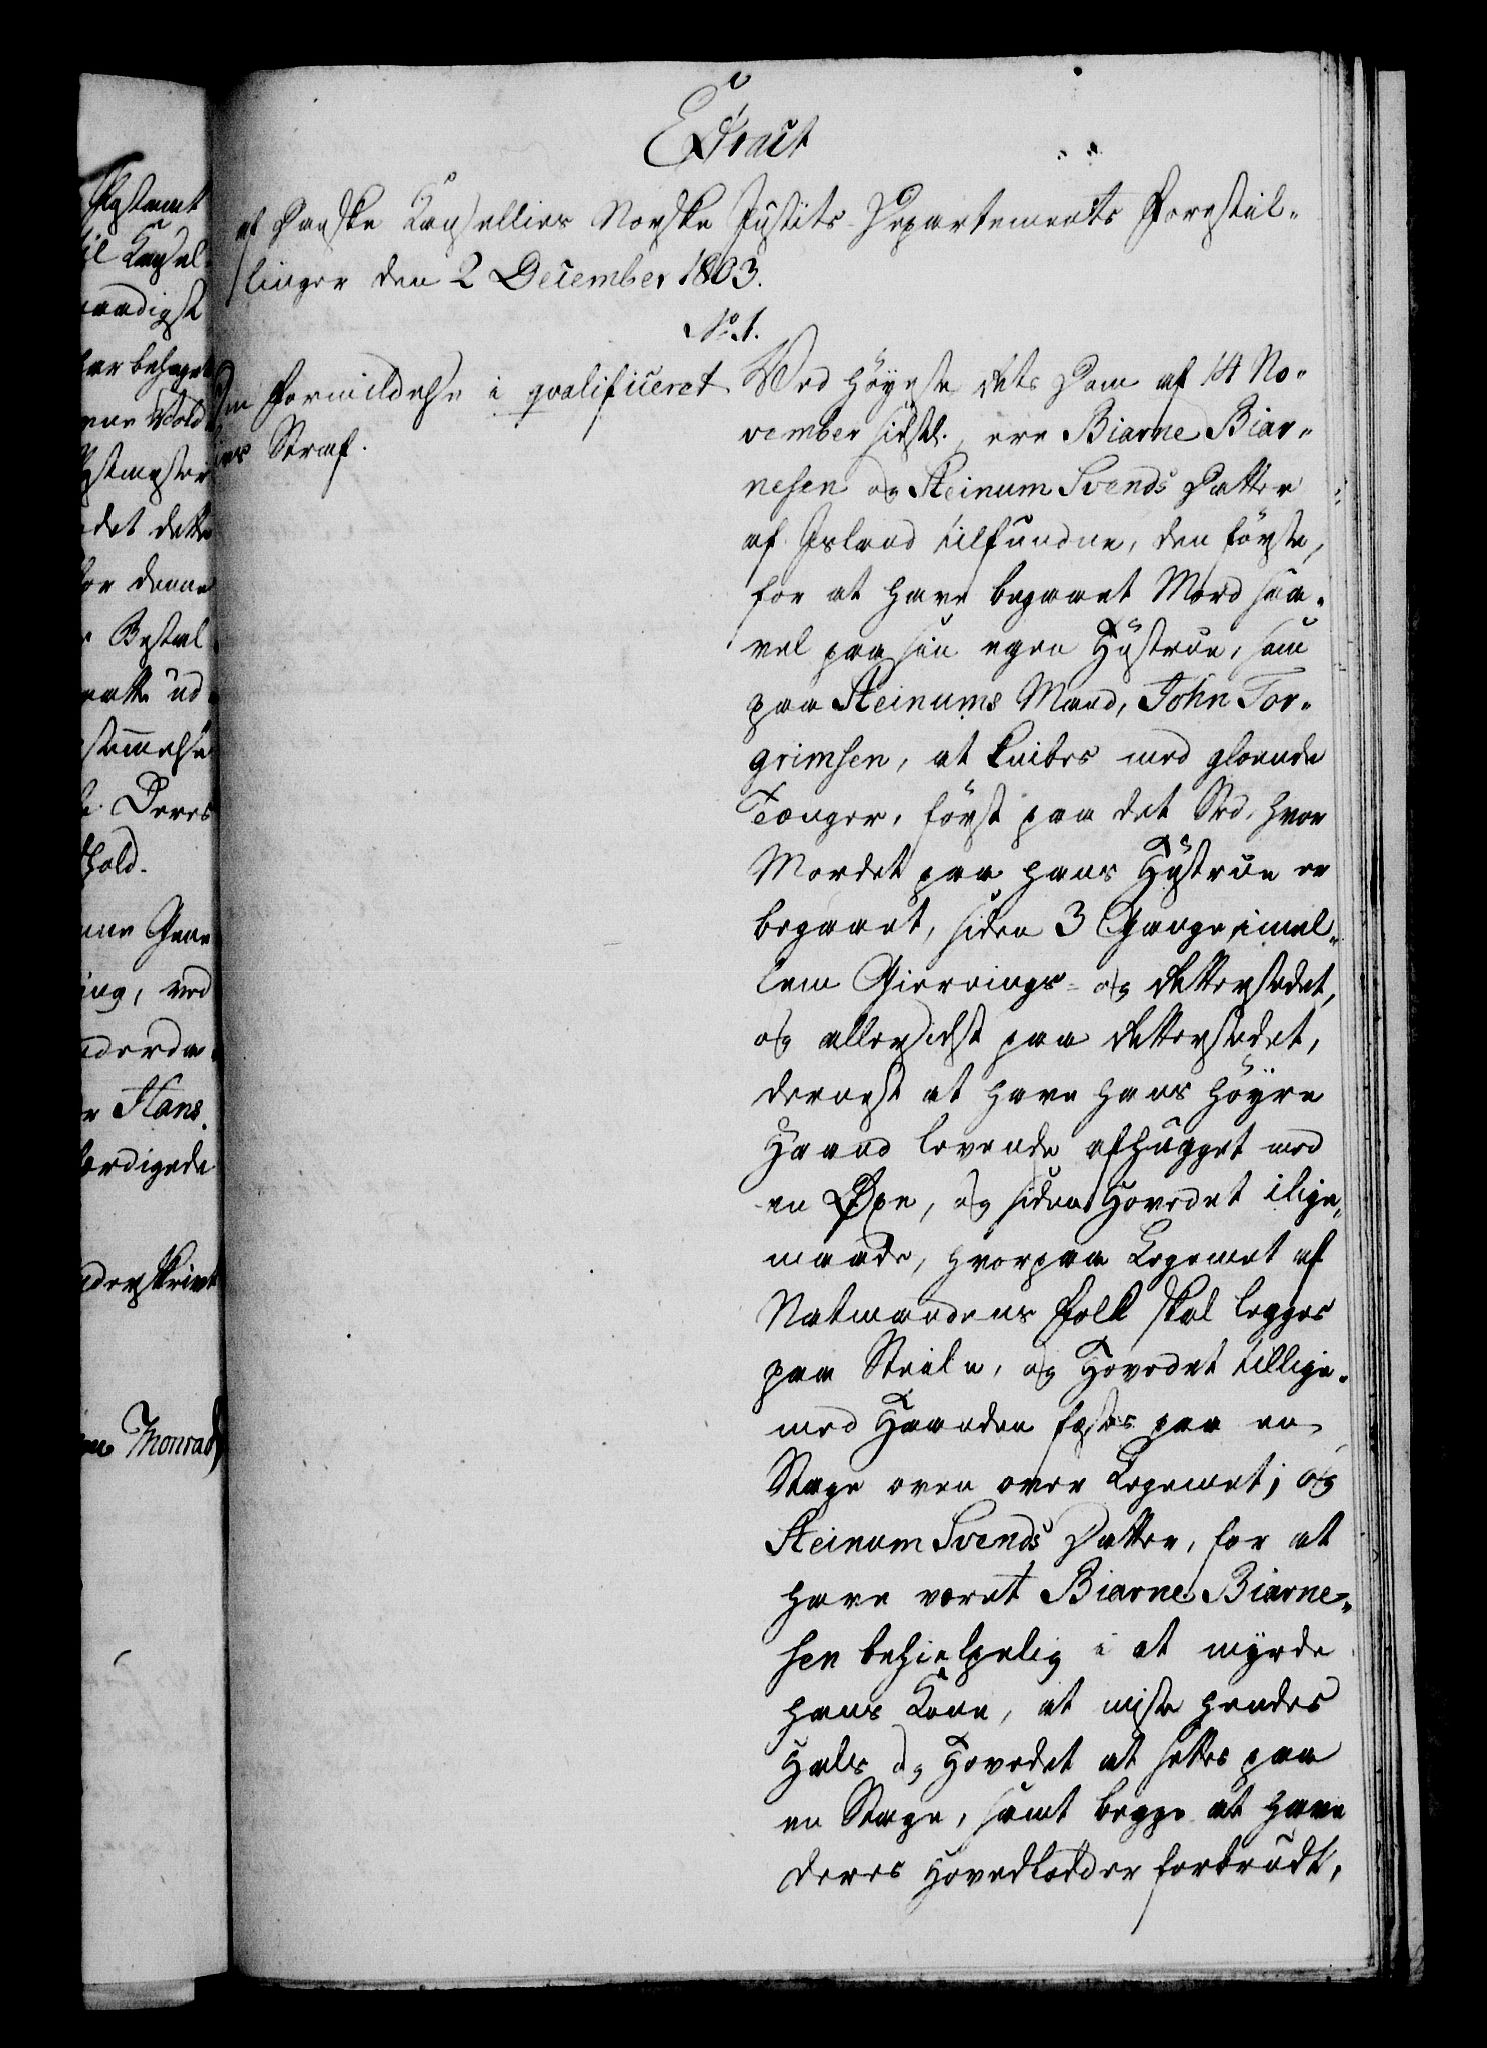 Extract
af Danske Cancellies Norske Justits-Departements Forestil-
linger den 2 December 1803.
No. 1.
Om Formildelse i qvalificeret
Livs Straf.
Ved Høyeste Rets Dom af 14 No-
vember sidstl. ere Biarne Biar-
nesen og Steinum Svends Datter
af Island tilfundne, den første,
for at have begaaet Mord saa-
vel paa sin egen Hustrue, som
paa Steinums Mand, John Tor-
grimsen, at knibes med gloende
Tænger, først paa det Sted, hvor
Mordet paa hans Hustrue er
begaaet, siden 3 Gange imel-
lem Giernings- og Rettersædet,
og allersidst paa Rettersædet,
dernest at have hans høyre
Haand levende afhugget med
en Øxe, og siden Hovedet ilige-
maade, hvorpaa Legemet af
Natmandens Folk skal legges
paa Steile, og Hovedet tillige-
med Haanden festes paa en
Stage oven over Legemet; og
Steinum Svends Datter, for at
have været Biarne Biarne-
sen behielpelig i at myrde
hans Kone, at miste hendes
Hals og Hovedet at settes paa
en Stage, samt begge at have
deres Hovedlodder forbrudt,
Postamt
til Cancel-
naadigst
har behaget
Vold
Postmester
det dette
for denne
Bestal
ud-
stemmelse
Deres
hold.
Gene
ing, ved
underda-
Hans
færdigede
underskrivt
Monrad